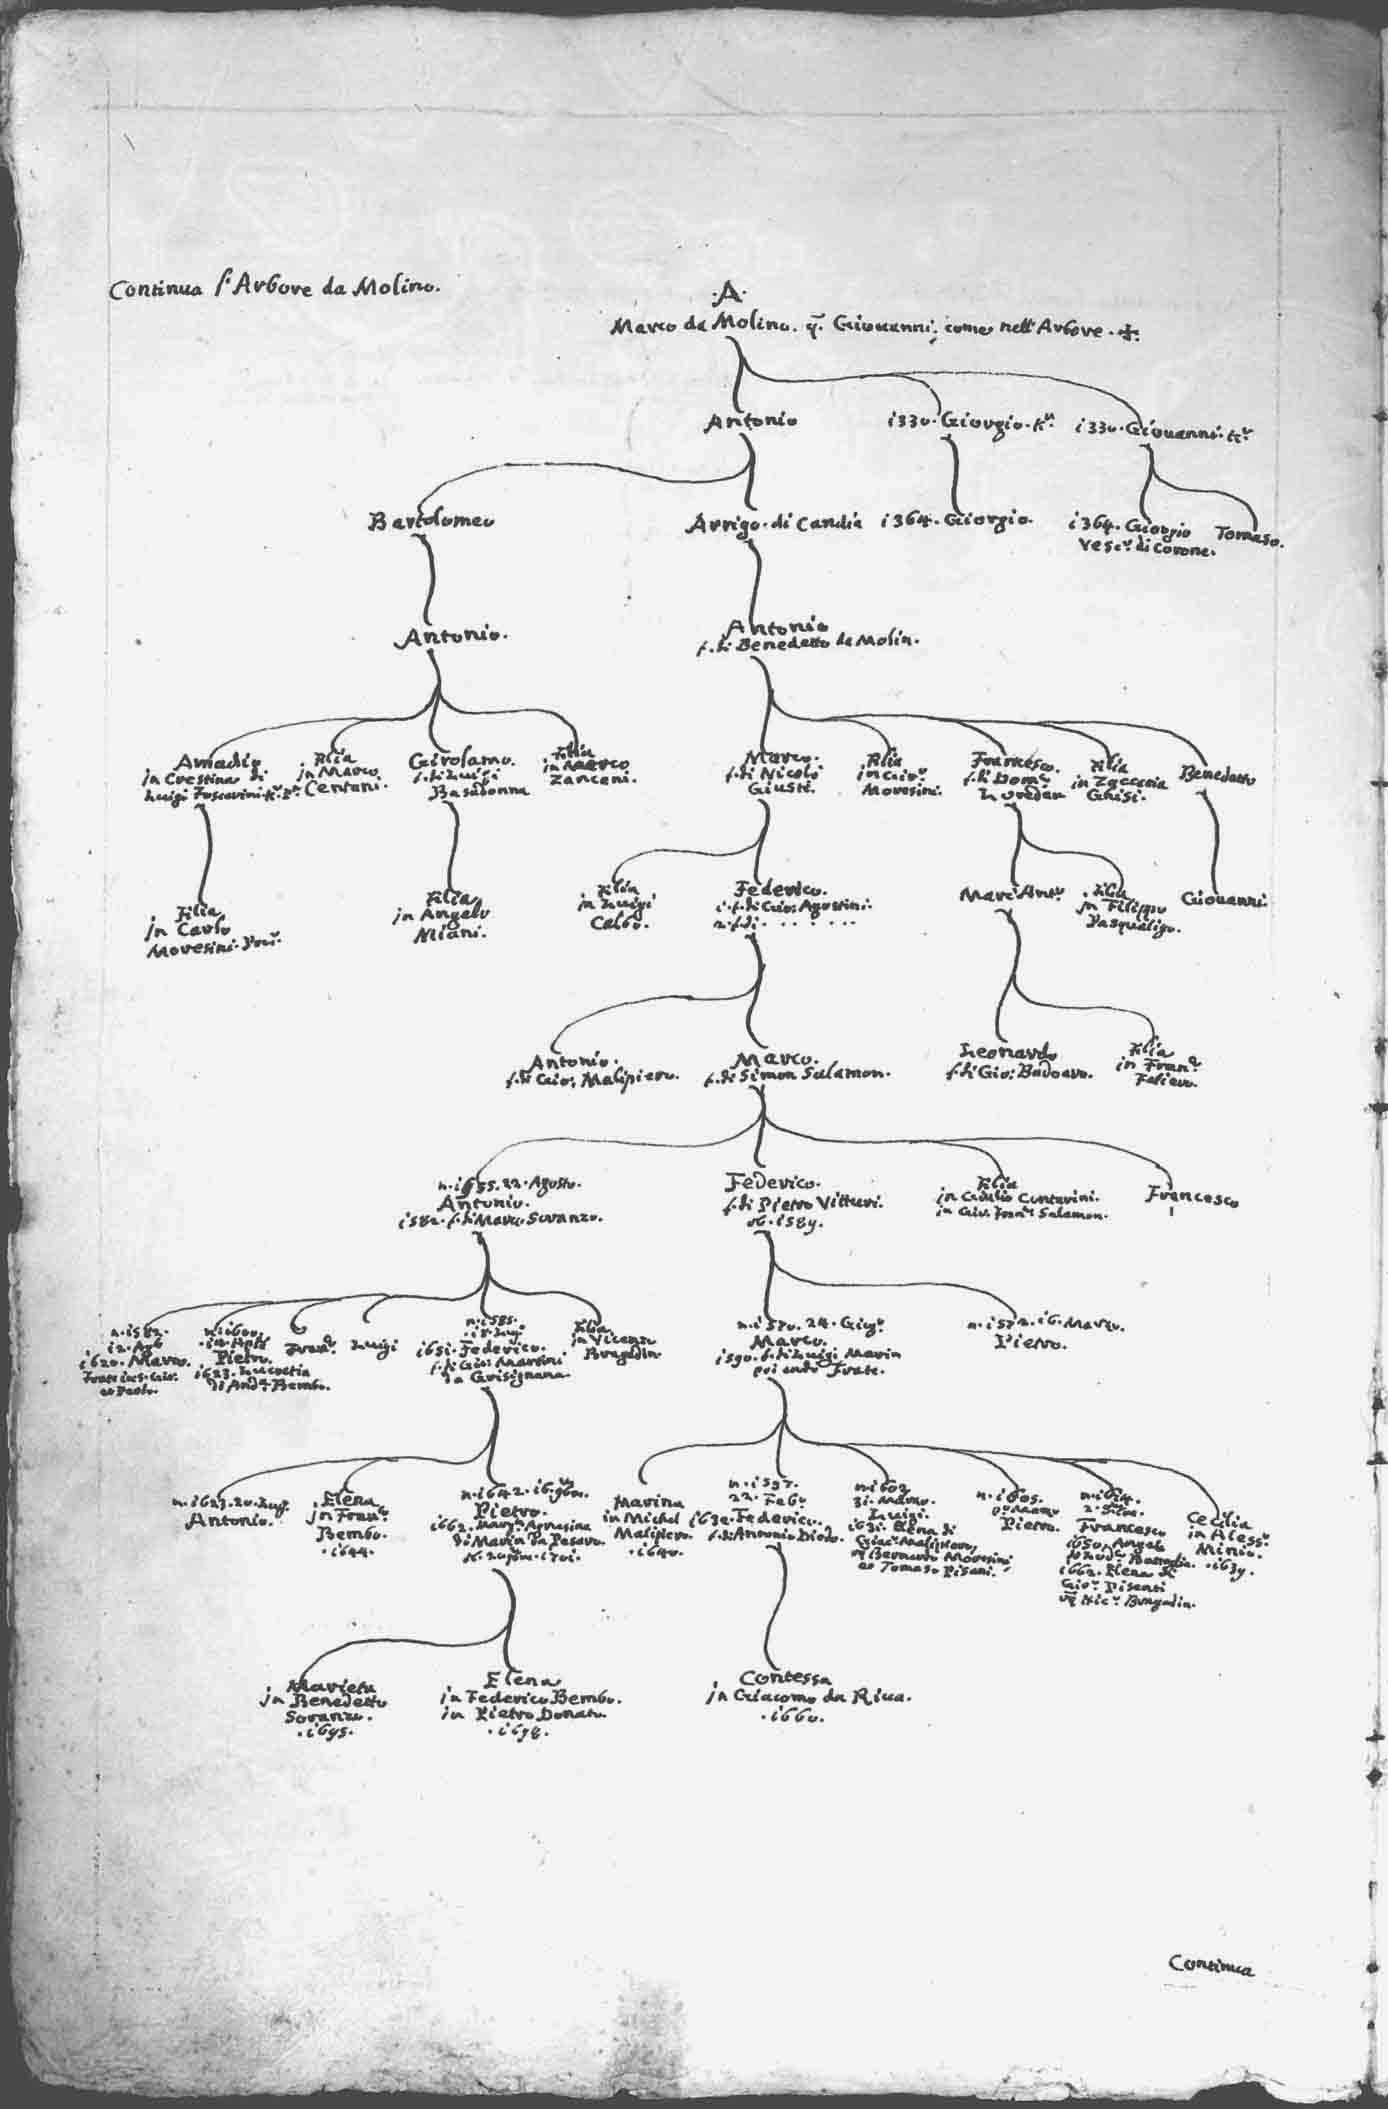 Continua l'Arbore da Molino.
·A·
Marco da Molino. q. Giouanni, come nell'Arbore. ✠.
Antonio
1330. Giorgio. Kr.
1330. Giouanni. Kr.
Bartolomeo
Arrigo di Candia
1364. Giorgio.
1364. Giorgio
Vesco. di Corone.
Tomaso.
Antonio.
Antonio
f. di Benedetto da Molin.
Amadio
in Crestina di
Luigi Foscarini. Kr. Pr.
Filia
in Marco
Centani.
Girolamo.
f. di Luigi
Basadonna
Filia
in Marco
Zancani.
Marco.
f. di Nicolò
Giusti.
Filia
in Giro.
Moresini.
Francesco.
f. di Domco.
Loredan
Filia
in Zaccaria
Ghisi.
Benedetto
Filia
in Carlo
Moresini.
Filia
in Angelo
Miani.
Filia
in Luigi
Calbo.
Federico.
1. f. di Gio: Agostini.
2. f. di. . . . . .
Marc'Anto.
Filia
in Filippo
Pasqualigo.
Giouanni.
Antonio.
f. di Gio: Malipiero.
Marco.
f. di Simon Salamon.
Leonardo
f. di Gio: Badoaro.
Filia
in Franco.
Falier.
22. Agosto.
Antonio.
1582. f. di Marco Soranzo.
Federico.
f. di Pietro Vitturi.
ob. 1589.
Filia
in Giulio Contarini.
in Gio. Franco Salamon.
Francesco
n. 1582.
12.
1620. Marco.
n. 1600.
Pietro.
1623. Lucretia
di Anda. Bembo.
Franco.
Luigi
n. 1585.
1651. Federico.
f. di Gio: Martini
da Grisignana.
Filia
in Vicenzo
Bragadin
n. 1570. 24. Giugo.
Marco.
1590. f. di Luigi Marin
poi andò Frate.
n. 1572. 16. Marzo.
Pietro.
n. 1623. 20. Lug.
Antonio.
Elena
in Franco.
Bembo.
·1644.
n. 1642. 16. 9bre.
Pietro.
1662. Margta.
di Marin da Pesaro.
Marina
in Michel
Malipiero.
·1640.
n. 1597.
22. Febo.
1630. Federico.
f. di Antonio Diedo.
n. 1602
31. Marzo.
Luigi.
1631. Elena di
Giaco. Malipiero,
va. Bernardo Moresini
et Tomaso Pisani.
n. 1605.
Pietro.
n. 1614.
Francesco
1650. Angela
Battaglia.
1662. Elena di
Gioo. Pisenti
va. Nico. Bragadin.
Cecilia
in Aless.
Minio.
·1639.
Marieta
in Benedetto
Soranzo.
·1695.
Elena
in Federico Bembo.
in Pietro Donato
·1678.
Contessa
in Giacomo da Riua.
·1660.
Continua